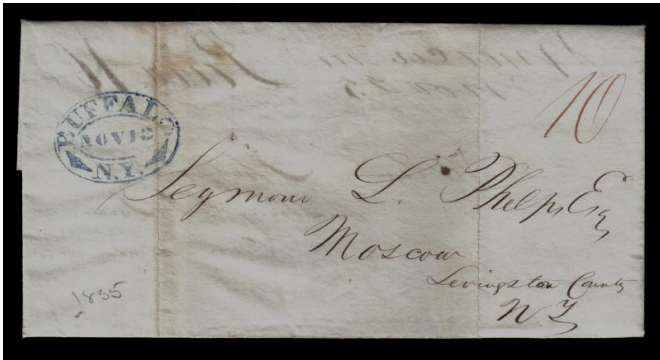 BUFFALO
NOV 18
N.Y.
10
Seymour L. Phelps, Esq
Moscow
Levingston County
N Y
1835